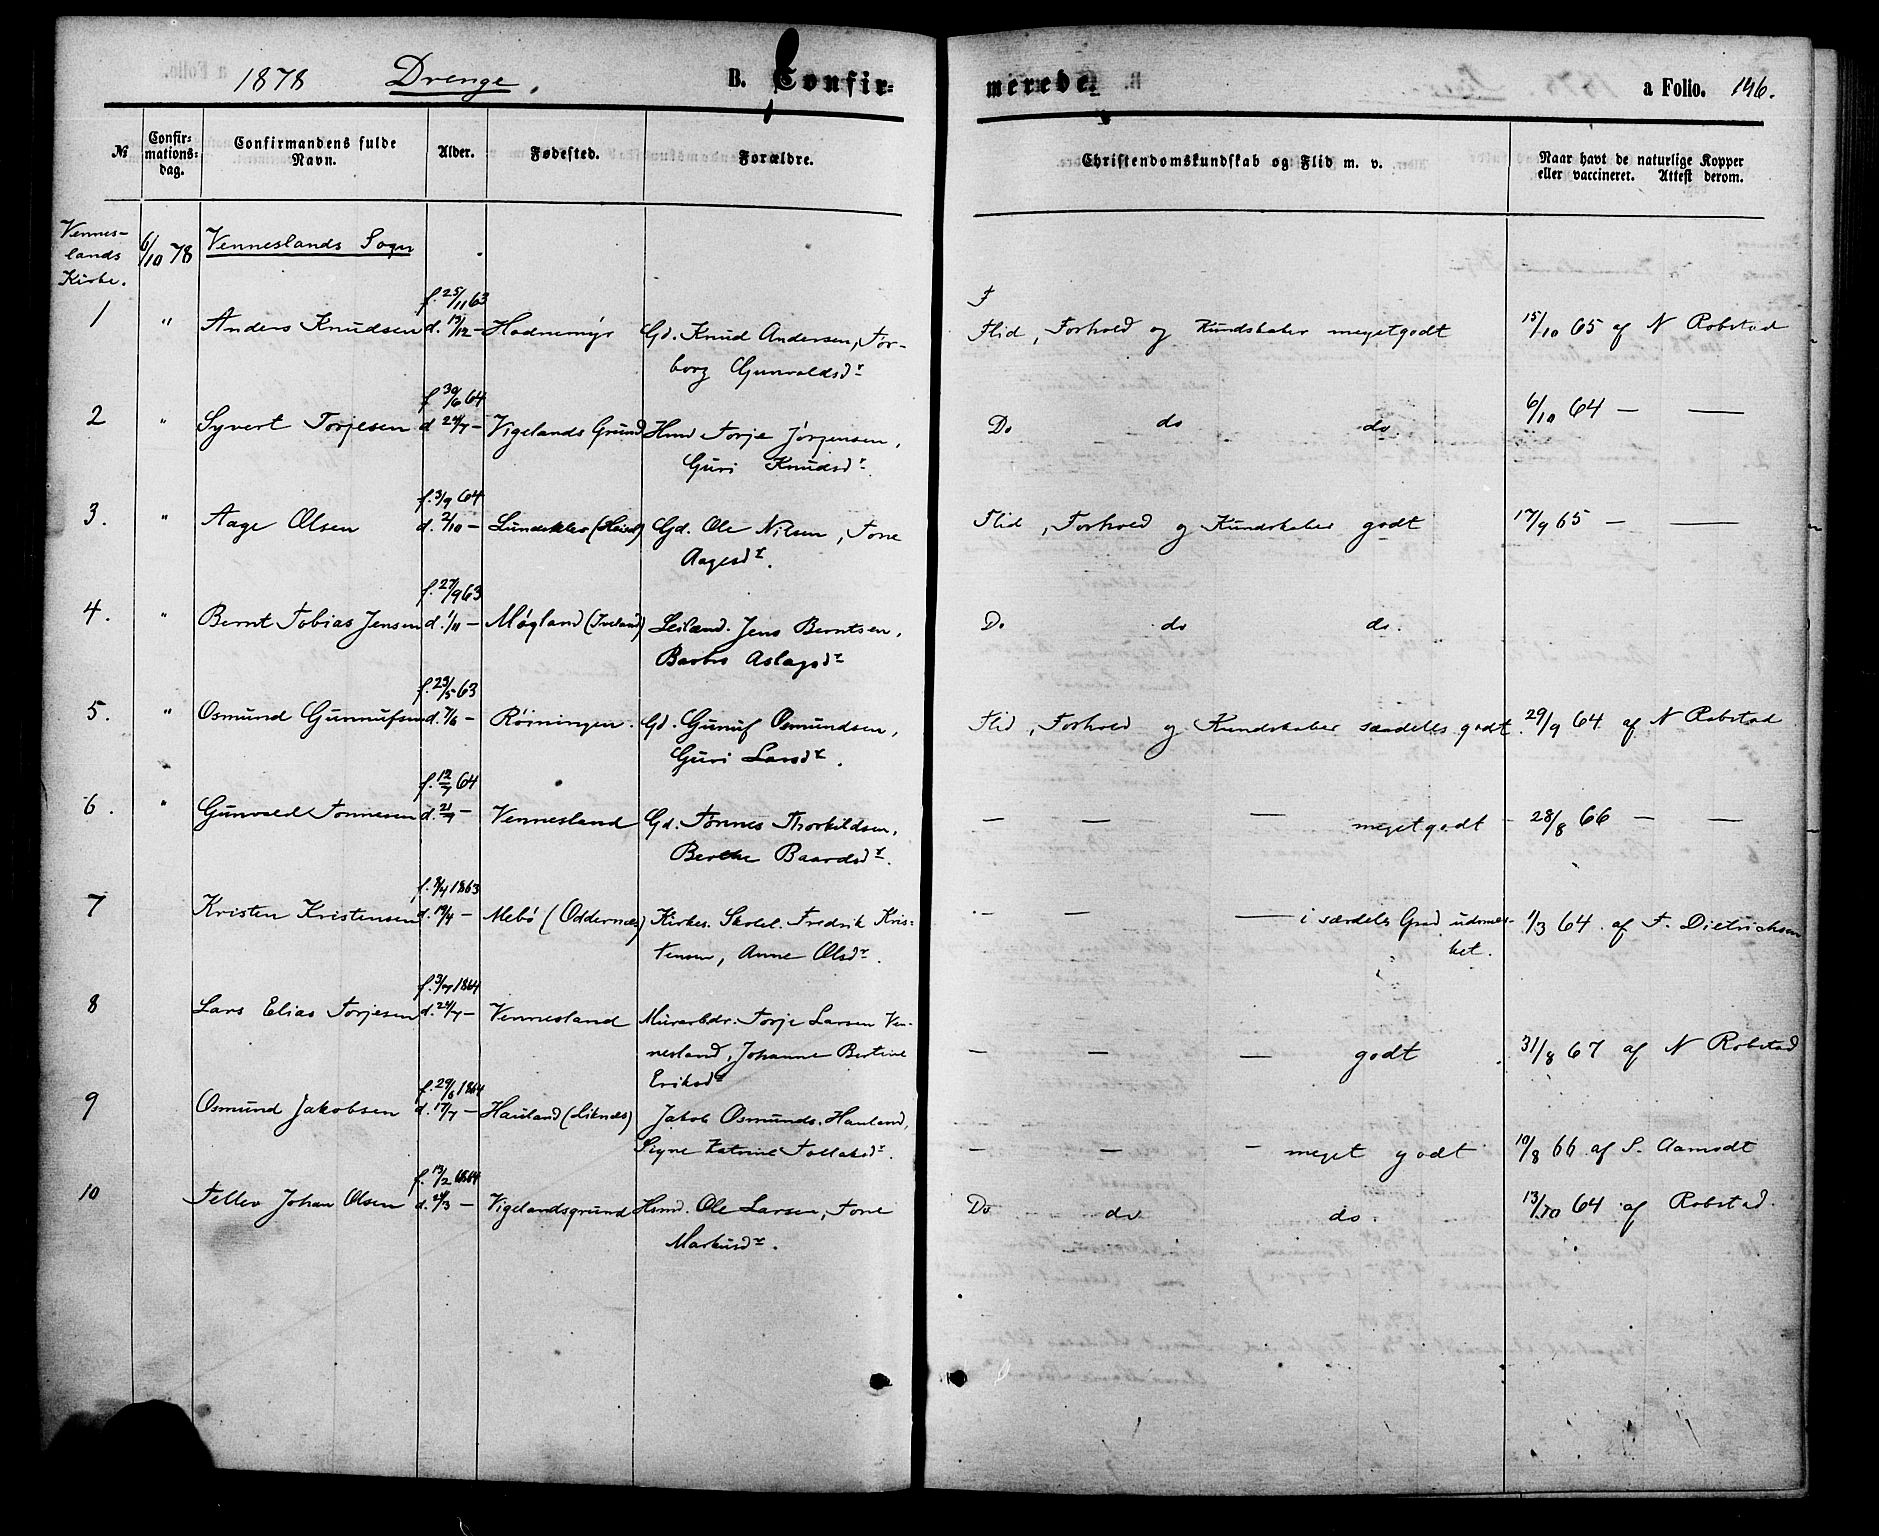 1878 Drenge. B. Confir- merede. a Folio. 146.
№ Confir-mations-dag. Confirmandens fulde Navn. Alder. Fødested. Forældre. Christendomskundskab og Flid m. v. Naar havt de naturlige Kopper eller vaccineret. Attest derom.
Vennes-lands Kirke. 6/10 78 Venneslands Sogn
1 " Anders Knudsen f. 25/11 63 d. 13/12 - Hodnemyr Gd. Knud Andersen, Tor-borg Gunvaldsdr Flid, Forhold og Kundskaber megetgodt 15/10 65 af N Robstad
2 " Syvert Torjesen f 30/6 64 d 24/7 - Vigelands Grund Hmd Torje Jørgensen, Guri Knudsdr. Do do do. 6/10 64 — —
3. " Aage Olsen f. 3/9 64 d. 2/10 - Gd. Ole Nilsen, Tone Aagesdr. Flid, Forhold og Kundskaber godt 17/9 65 — —
4. " Bernt Tobias Jensen f. 27/9 63 d. 1/11 - Møgland (Iveland) Leilænd. Jens Berntsen, Barbro Aslagsdr Do do do.
5. " Osmund Gunnufsen f. 23/5 63 d. 7/6 - Røiningen. Gd. Gunuf Osmundsen, Guri Larsdr. Flid, Forhold og Kundskaber særdeles godt. 29/9 64 af N Robstad
6. " Gunvald Tønnesen f. 12/7 64 d. 21/7 - Vennesland Gd. Tønnes Thorkildsen, Berthe Baardsdr. — — — megetgodt - 28/8 66 — —
7 Kristen Kristensen f. 8/4 1863 d. 19/4 - Mebø (Oddernæs) Kirkes. Skolel. Fredrik Kris-tensen, Anne Olsdr. — — — i særdeles Grad udmær-ket. 1/3 64 af F. Dietrichson
8 Lars Elias Torjesen f. 3/7 1864 d. 24/7 - Vennesland Murarbdr. Torje Larsen Ven-nesland, Johanne Bertine Eriksdr — — — godt. 31/8 67 af N Robstad
9 Osmund Jakobsen f. 29/6 1864 d. 17/7 - Hauland (Liknæs) Jakob Osmunds. Hauland, Signe Katrine Tollaksdr. — — - meget godt 10/8 66 af S. Aamodt
10 Tellev Johan Olsen f. 13/2 1864 d. 28/3 - Vigelandsgrund Hsmd. Ole Larsen, Tone Markusdr. Do do do. 13/10 64 af Robstad.